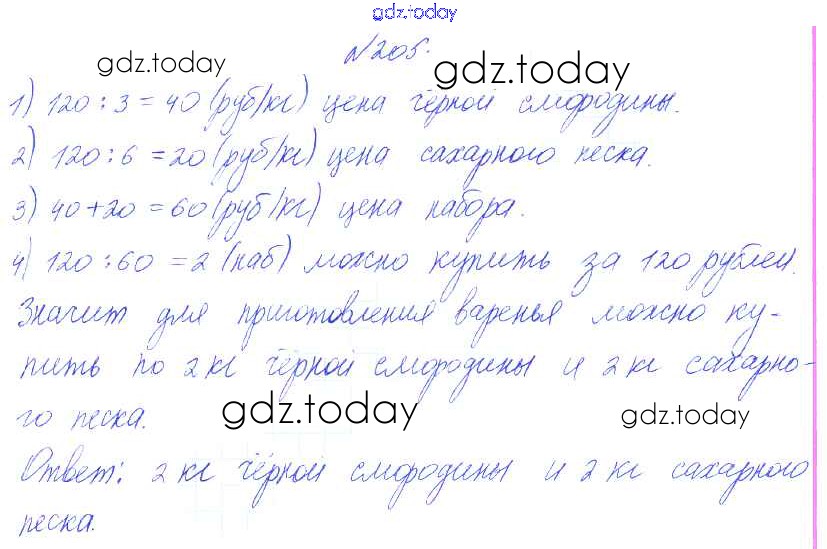 gdz.today
№205.
gdz.today gdz.today
1) 120 : 3 = 40 (руб/кг) цена чёрной смородины.
2) 120 : 6 = 20 (руб/кг) цена сахарного песка.
3) 40 + 20 = 60 (руб/кг) цена набора.
4) 120 : 60 = 2 (наб) можно купить за 120 рублей.
Значит для приготовления варенья можно ку-
пить по 2 кг чёрной смородины и 2 кг сахарно-
го песка.
gdz.today gdz.today
Ответ: 2 кг чёрной смородины и 2 кг сахарного
песка.